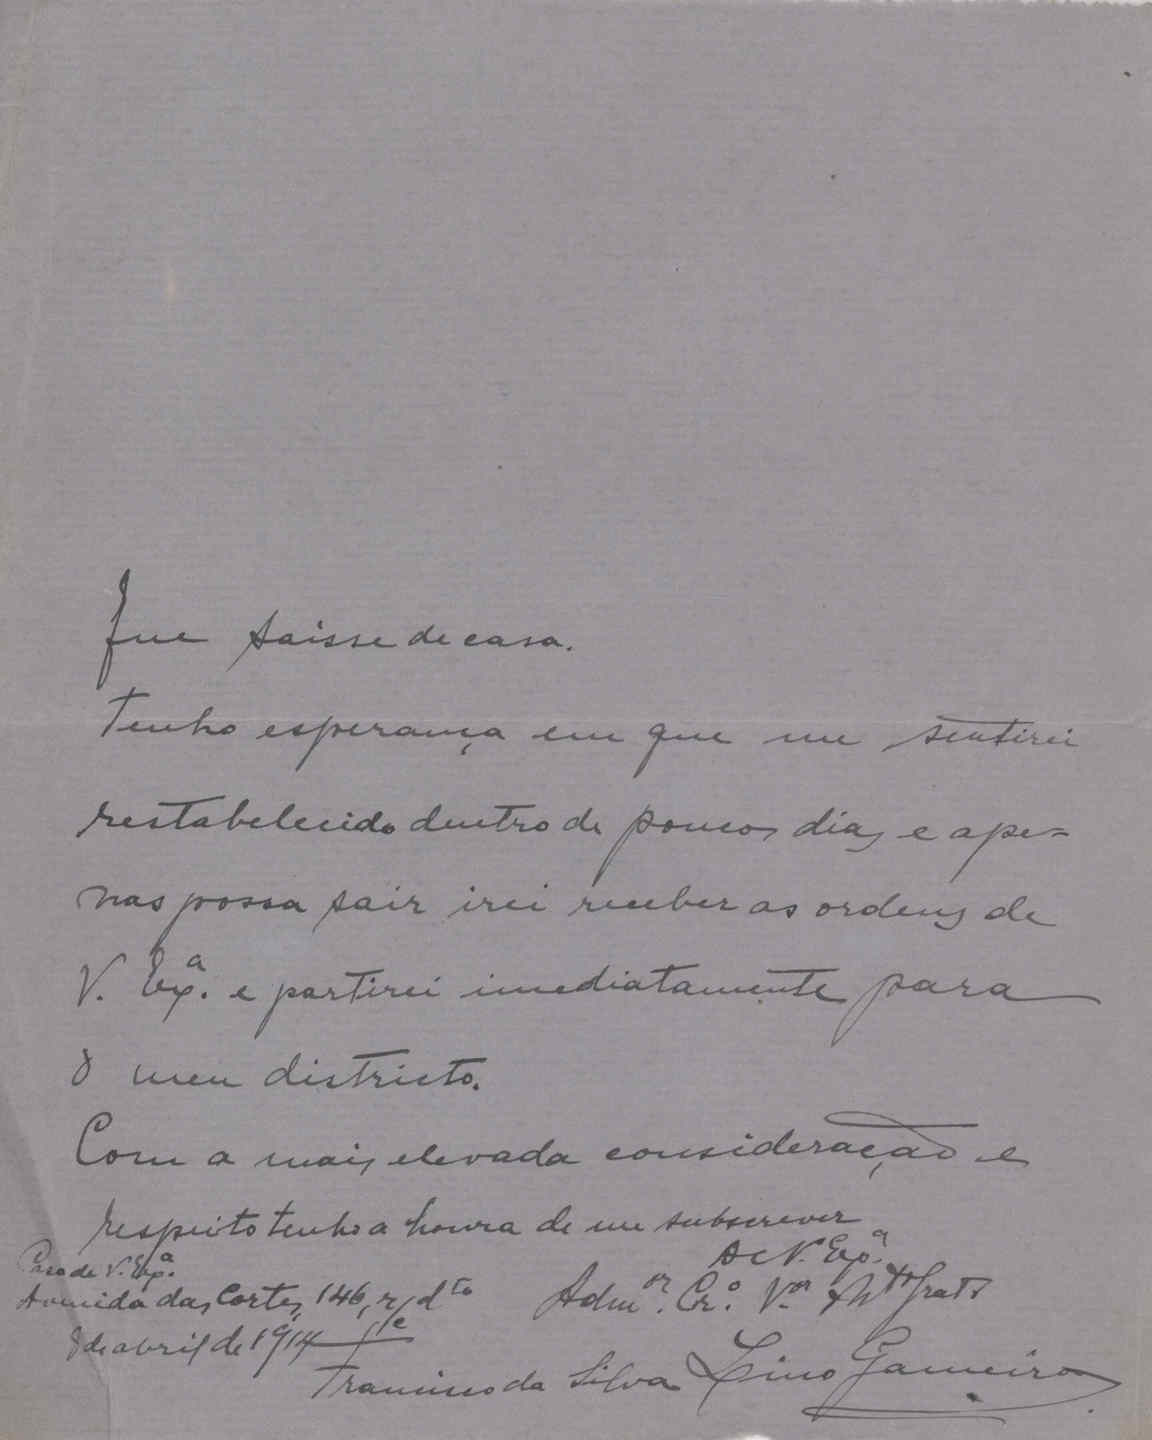 que saisse de casa.
Tenho esperança em que me sentirei
restabelecido dentro de poucos dias e ape-
nas possa sair irei receber as ordens de
V. Exª. e partirei imediatamente para
o meu districto.
Com a mais elevada consideração e
respeito tenho a honra de me subscrever
De V. Exª.
Admor. Cro. Vor. e Mto Grato
Casa de V. Exª.
Avenida das Cortes, 146, r/c dto
8 de abril de 1914
Francisco da Silva Lino Gameiro